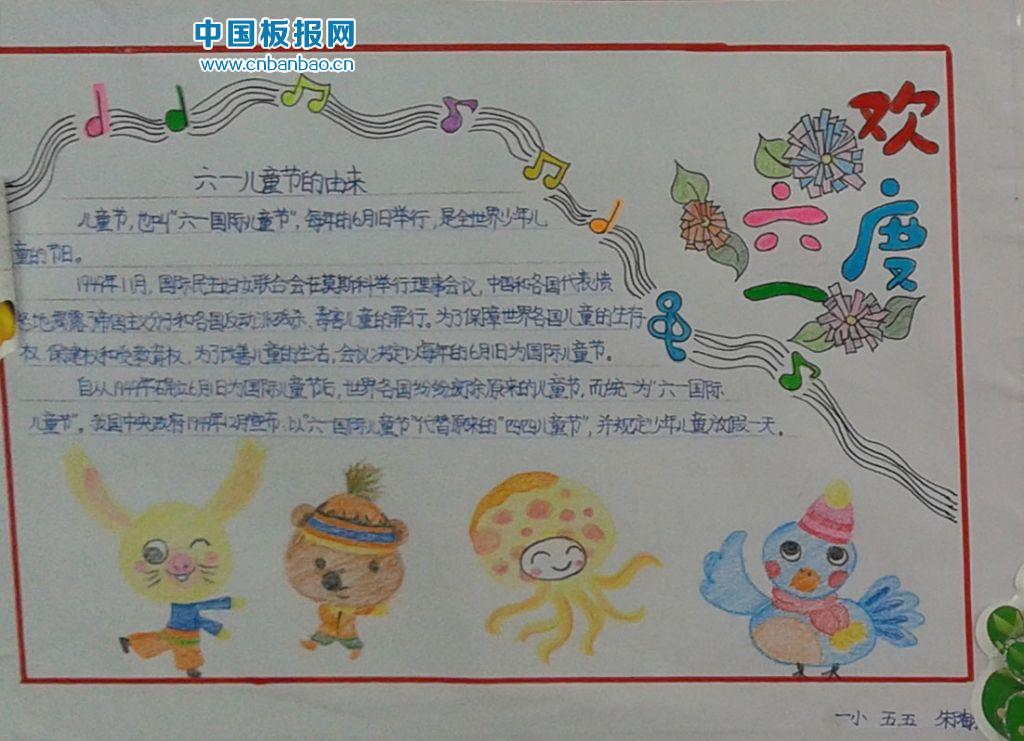 中国板报网
www.cnbanbao.cn
欢度
六一
六一儿童节的由来
儿童节,也叫"六一国际儿童节",每年的6月1日举行,是全世界少年儿
童的节日。
1949年11月,国际民主妇女联合会在莫斯科举行理事会议,中国和各国代表愤
怒地揭露了帝国主义分子和各国反动派残杀、毒害儿童的罪行。为了保障世界各国儿童的生存
权、保健权和受教育权,为了改善儿童的生活,会议决定以每年的6月1日为国际儿童节。
自从1949年确立6月1日为国际儿童节后,世界各国纷纷废除原来的儿童节,而统一为"六一国际
儿童节"。我国中央政府1949年12月宣布,以"六一国际儿童节"代替原来的"四四儿童节",并规定少年儿童放假一天。
一小 五.五 朱